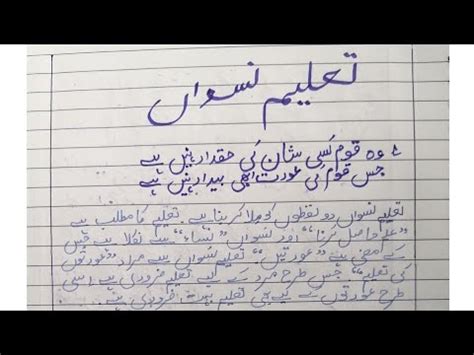 تعلیم نسواں
؎ وہ قوم کسی شان کی حقدار نہیں ہے
جس قوم کی عورت ابھی بیدار نہیں ہے
تعلیم نسواں دو لفظوں کو ملا کر بنا ہے۔ تعلیم کا مطلب ہے
"علم حاصل کرنا" اور نسواں "نساء" سے نکلا ہے جس
کے معنی ہے "عورتیں" تعلیم نسواں سے مراد "عورتوں
کی تعلیم"۔ جس طرح مرد کے لیے تعلیم ضروری ہے اسی
طرح عورتوں کے لیے بھی تعلیم بہت ضروری ہے۔